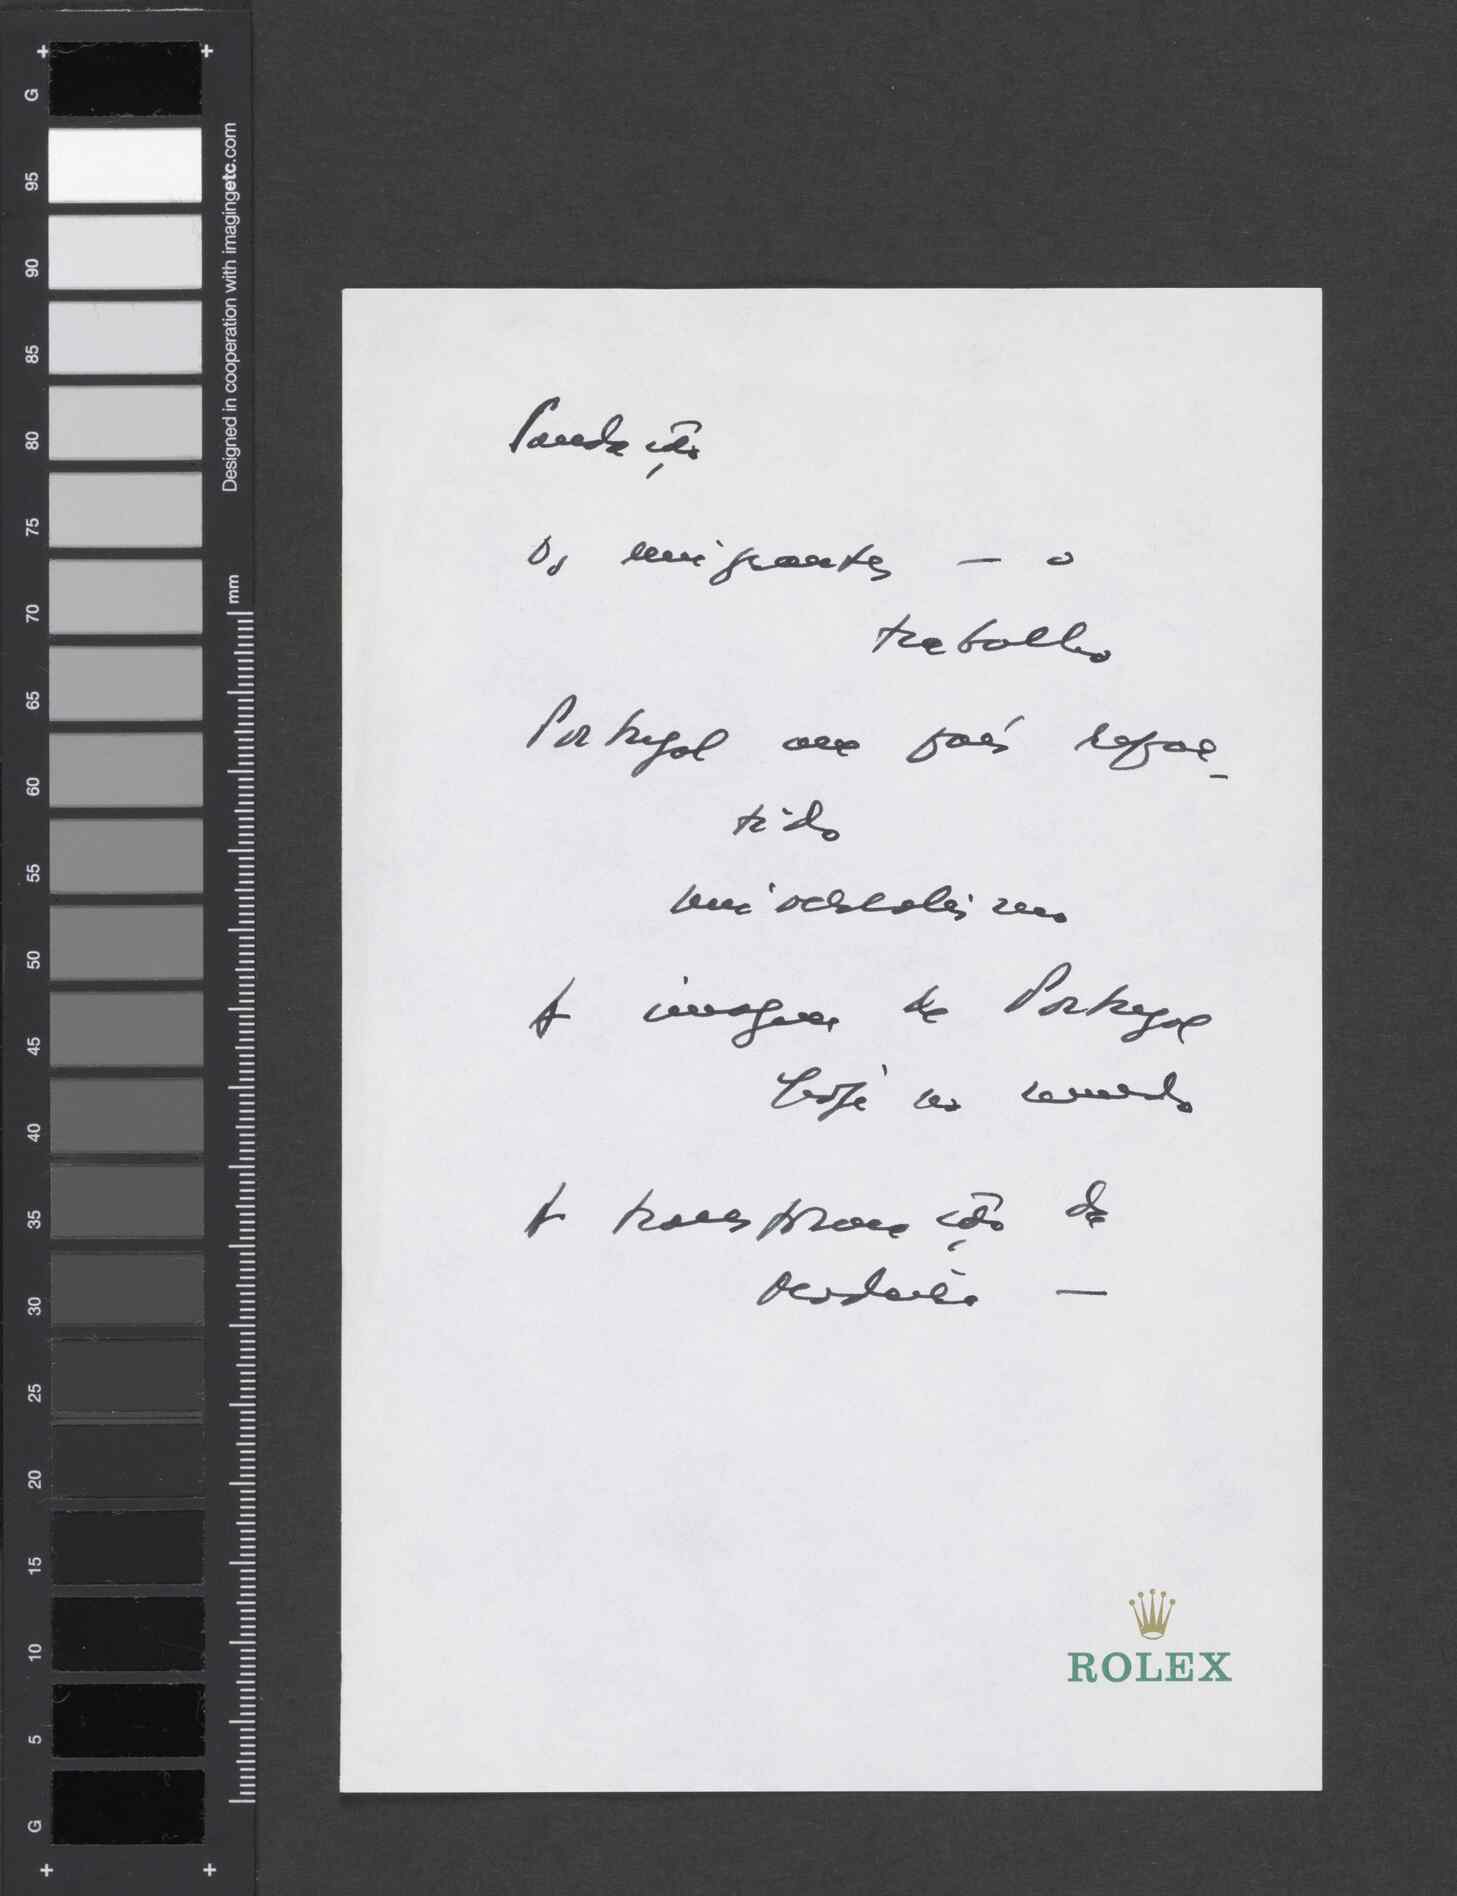 Saudação
Os emigrantes — o
trabalho
Portugal um país repar-
tido
A imagem de Portugal
hoje no mundo
A transformação da
ROLEX
G
95
90
85
80
75
70
65
60
55
50
45
40
35
30
25
20
15
10
5
G
Designed in cooperation with imagingetc.com
mm